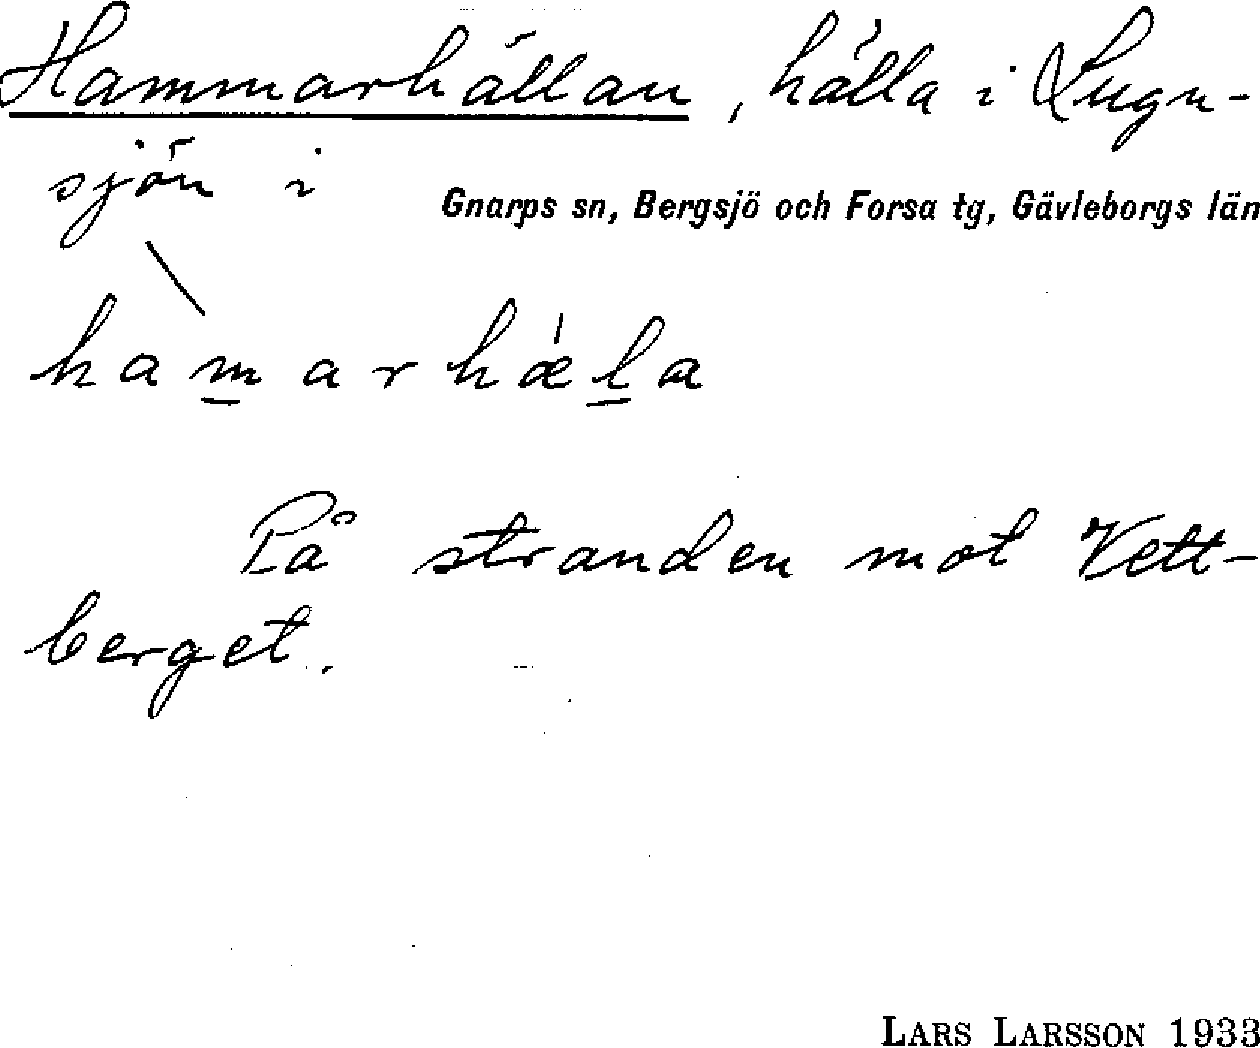 Hammarhällan, hälla i Lugn-
sjön i Gnarps sn, Bergsjö och Forsa tg, Gävleborgs län
hàm̲arhǽl̲a
På stranden mot Vett-
berget.
LARS LARSSON 1933